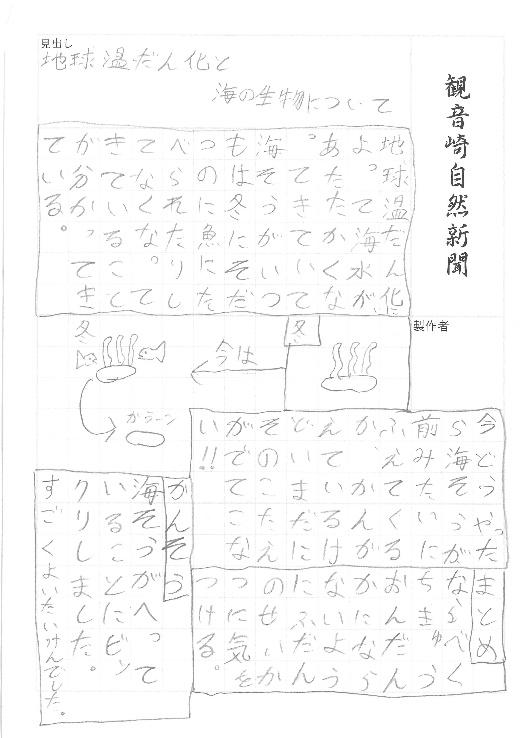 観音崎自然新聞
見出し
地球温だん化と
海の生物について
製作者
地球温だん化に
よって海水が、
あたたかくな
ってきていて
海そうがいつ
もは冬にそだ
つのに魚にた
べられたりし
てなくなって
きていること
が分かってき
ている。
冬
今は
冬
ガラーン
今どうやった
ら海そうが
前みたいに
ふえてくる
か、かんが
えているけ
どいまだに
そのこたえ
がでてこな
い!!
まとめ
なるべく
ちきゅう
おんだん
かになら
ないよう
にふだん
のせいか
つに気を
つける。
がんそう
海そうがへって
いることにビッ
クリしました。
すごくよいたいけんでした。